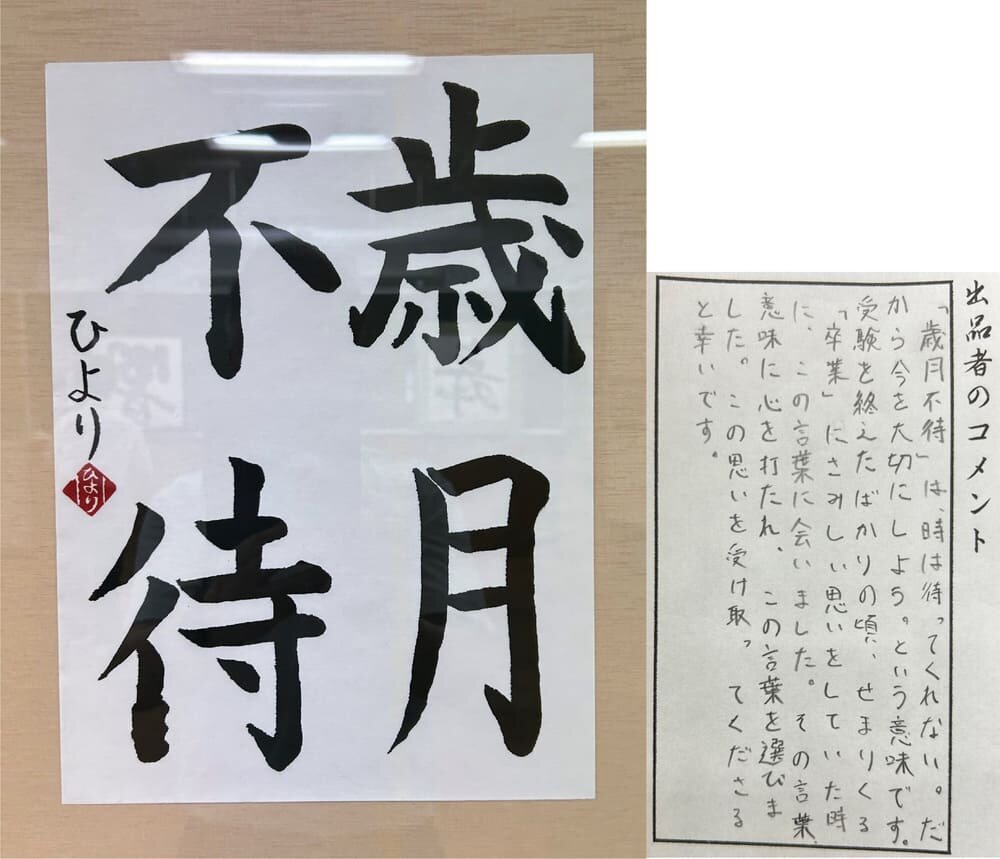 歳月
不待
ひより
ひより
出品者のコメント
「歳月不待」は、時は待ってくれない。だ
から今を大切にしよう。という意味です。
受験を終えたばかりの頃、せまりくる
「卒業」にさみしい思いをしていた時
に、この言葉に会いました。その言葉
意味に心を打たれ、この言葉を選びま
した。この思いを受け取ってくださる
と幸いです。